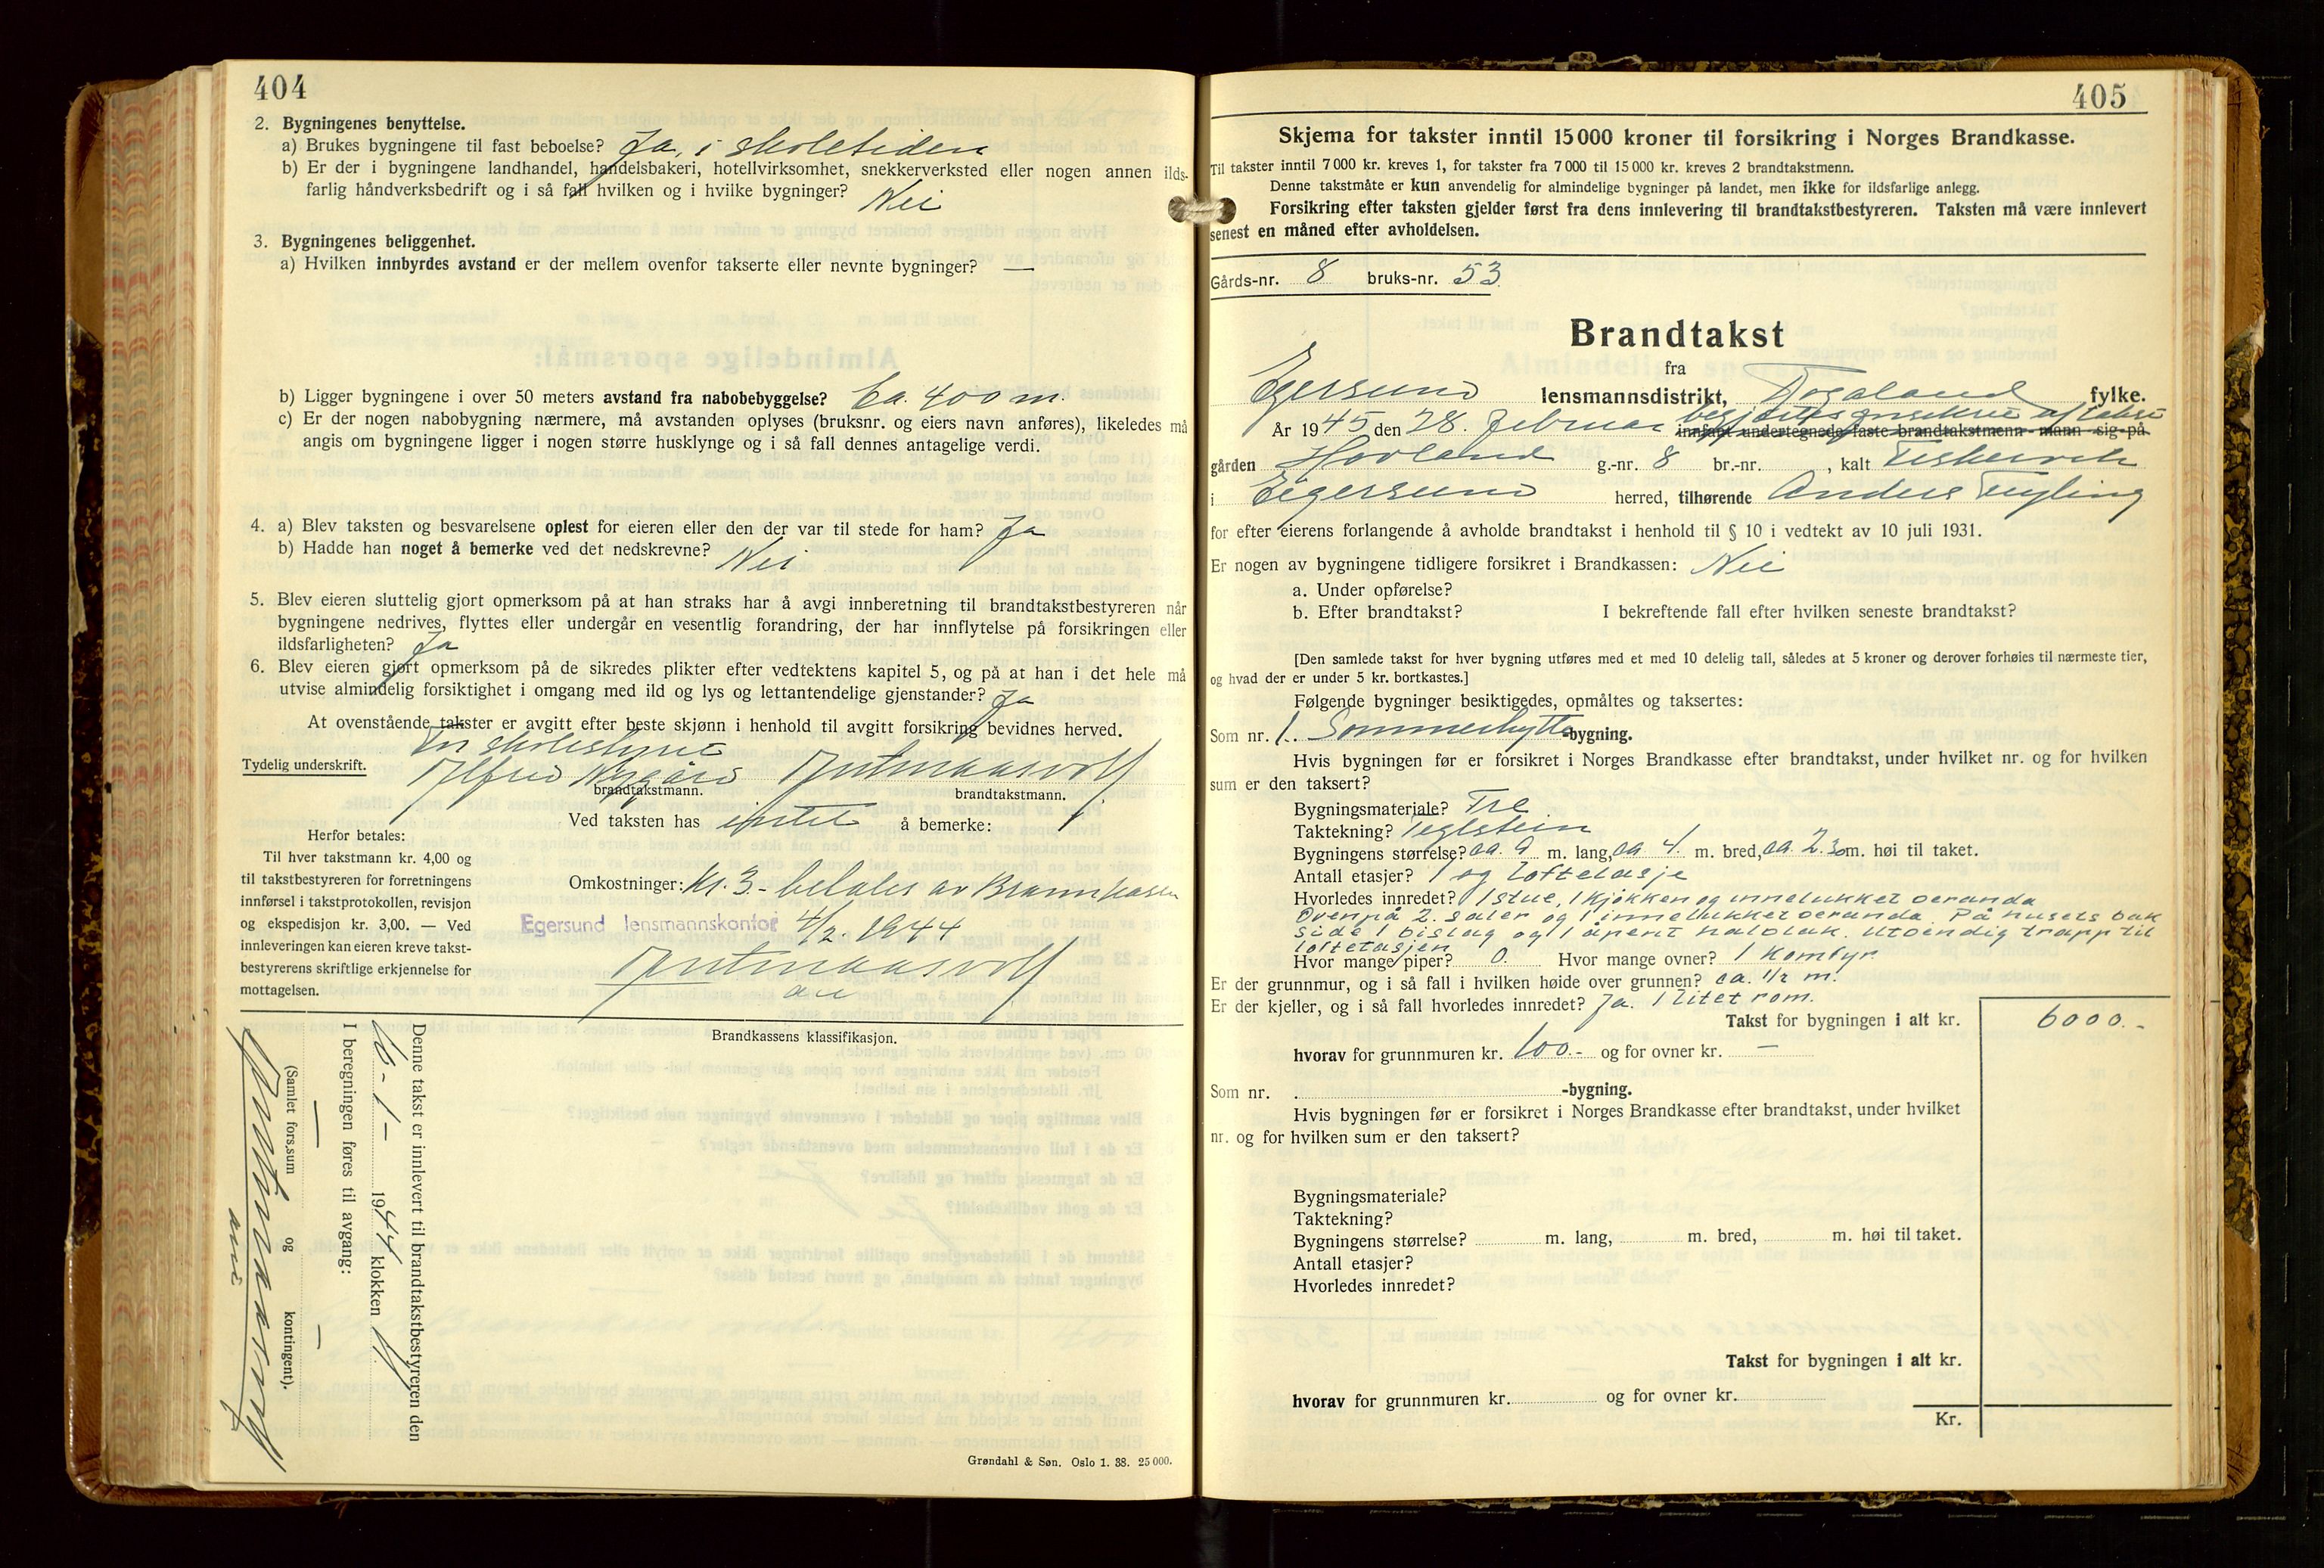 404
2. Bygningenes benyttelse.
a) Brukes bygningene til fast beboelse? Ja, i skoletiden
b) Er der i bygningene landhandel, handelsbakeri, hotellvirksomhet, snekkerverksted eller nogen annen ilds-
farlig håndverksbedrift og i så fall hvilken og i hvilke bygninger? Nei
3. Bygningenes beliggenhet.
a) Hvilken innbyrdes avstand er der mellem ovenfor takserte eller nevnte bygninger? —
b) Ligger bygningene i over 50 meters avstand fra nabobebyggelse? Ca. 400 m.
c) Er der nogen nabobygning nærmere, må avstanden oplyses (bruksnr. og eiers navn anføres), likeledes må
angis om bygningene ligger i nogen større husklynge og i så fall dennes antagelige verdi.
4. a) Blev taksten og besvarelsene oplest for eieren eller den der var til stede for ham? Ja
b) Hadde han noget å bemerke ved det nedskrevne? Nei
5. Blev eieren sluttelig gjort opmerksom på at han straks har å avgi innberetning til brandtakstbestyreren når
bygningene nedrives, flyttes eller undergår en vesentlig forandring, der har innflytelse på forsikringen eller
ildsfarligheten? Ja
6. Blev eieren gjort opmerksom på de sikredes plikter efter vedtektens kapitel 5, og på at han i det hele må
utvise almindelig forsiktighet i omgang med ild og lys og lettantendelige gjenstander? Ja
At ovenstående takster er avgitt efter beste skjønn i henhold til avgitt forsikring bevidnes herved.
skolestyret
Tydelig underskrift. Alfred Nygård
brandtakstmann. brandtakstmann.
Ved taksten has intet å bemerke:
Herfor betales:
Til hver takstmann kr. 4,00 og
til takstbestyreren for forretningens
innførsel i takstprotokollen, revisjon
og ekspedisjon kr. 3,00. — Ved
innleveringen kan eieren kreve takst-
bestyrerens skriftlige erkjennelse for
mottagelsen.
Omkostninger: Kr. 3.- betales av Brannkassen
Egersund lensmannskontor 4/2. 1944
Brandkassens klassifikasjon.
Denne takst er innlevert til brandtakstbestyreren den
1944 klokken
I beregningen føres til avgang:
— —
(Samlet fors.sum og kontingent).
Grøndahl & Søn. Oslo 1. 38. 25 000.
405
Skjema for takster inntil 15 000 kroner til forsikring i Norges Brandkasse.
Til takster inntil 7 000 kr. kreves 1, for takster fra 7 000 til 15 000 kr. kreves 2 brandtakstmenn.
Denne takstmåte er kun anvendelig for almindelige bygninger på landet, men ikke for ildsfarlige anlegg.
Forsikring efter taksten gjelder først fra dens innlevering til brandtakstbestyreren. Taksten må være innlevert
senest en måned efter avholdelsen.
Gårds-nr. 8 bruks-nr. 53
Brandtakst
fra
Egersund lensmannsdistrikt, Rogaland fylke.
År 1945 den 28. februar innfant undertegnede faste brandtakstmenn- mann- sig på
gården Hovland g.-nr. 8 br.-nr. , kalt
i Eigersund herred, tilhørende Anders
for efter eierens forlangende å avholde brandtakst i henhold til § 10 i vedtekt av 10 juli 1931.
Er nogen av bygningene tidligere forsikret i Brandkassen: Nei
a. Under opførelse?
b. Efter brandtakst? I bekreftende fall efter hvilken seneste brandtakst?
[Den samlede takst for hver bygning utføres med et med 10 delelig tall, således at 5 kroner og derover forhøies til nærmeste tier,
og hvad der er under 5 kr. bortkastes.]
Følgende bygninger besiktigedes, opmåltes og taksertes:
Som nr. 1. Sommerhytte -bygning.
Hvis bygningen før er forsikret i Norges Brandkasse efter brandtakst, under hvilket nr. og for hvilken
sum er den taksert?
Bygningsmateriale? Tre
Taktekning? Teglstein
Bygningens størrelse? ca. 9 m. lang, ca 4. m. bred, ca 2.30 m. høi til taket.
Antall etasjer? 1 og Loftetasje
Hvorledes innredet? 1 stue, 1 kjøkken og innelukket veranda
Ovenpå 2. saler og 1 innelukket veranda. På husets bak
side 1 bislag og 1 åpent halvtak. Utvendig trapp til
loftetasjen
Hvor mange piper? 0. Hvor mange ovner? 1 Komfyr
Er der grunnmur, og i så fall i hvilken høide over grunnen? ca. 1/2 m.
Er der kjeller, og i så fall hvorledes innredet? Ja. 1 litet rom.
Takst for bygningen i alt kr. 6000.-
hvorav for grunnmuren kr. 100.- og for ovner kr. —
Som nr. . -bygning.
Hvis bygningen før er forsikret i Norges Brandkasse efter brandtakst, under hvilket
nr. og for hvilken sum er den taksert?
Bygningsmateriale?
Taktekning?
Bygningens størrelse? m. lang, m. bred, m. høi til taket.
Antall etasjer?
Hvorledes innredet?
Takst for bygningen i alt kr.
hvorav for grunnmuren kr. og for ovner kr.
Kr.